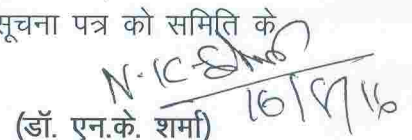 सूचना पत्र को समिति के
N.K. Sharma
16/9/16
(डॉ. एन.के. शर्मा)